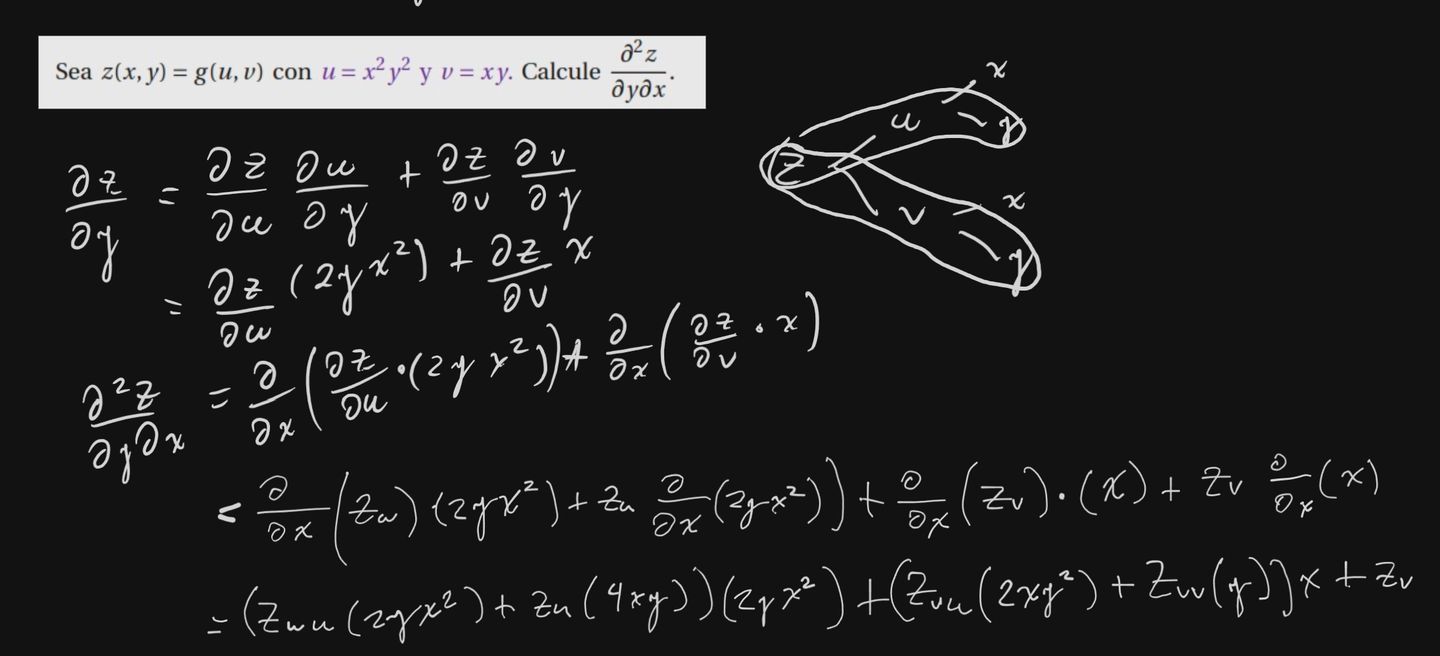 Sea z(x, y) = g(u, v) con u = x²y² y v = xy. Calcule ∂²z/∂y∂x.
∂z/∂y = ∂z/∂u ∂u/∂y + ∂z/∂v ∂v/∂y
= ∂z/∂u (2yx²) + ∂z/∂v x
∂²z/∂y∂x = ∂/∂x (∂z/∂u · (2yx²)) + ∂/∂x (∂z/∂v · x)
= ∂/∂x (z_u) (2yx²) + z_u ∂/∂x (2yx²)) + ∂/∂x (z_v) · (x) + z_v ∂/∂x (x)
= (z_uu (2yx²) + z_u (4xy)) (2yx²) + (z_vu (2xy²) + z_vv (y)) x + z_v
x
u
y
z
x
v
y